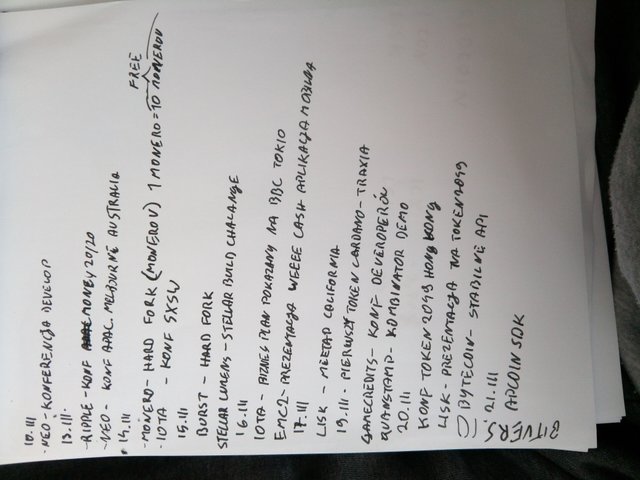 10.III
- NEO - KONFERENCJA DEVELOP
13.III.
- RIPPLE - KONF MONEY 20/20
- NEO - KONF APAC MELBURNE AUSTRALIA
14.III
- MONERO - HARD FORK (MONERO V) 1 MONERO = 10 MONEROV
FREE
- IOTA - KONF SXSW
15.III
BURST - HARD FORK
STELLAR LUMENS - STELLAR BUILD CHALANGE
16.III
IOTA - BIZNES PLAN POKAZANY NA BBC TOKIO
EMC2 - PREZENTACJA WEEEE CASH APLIKACJA MOBILNA
17.III
LISK - MEETAP CALIFORNIA
19.III - PIERWSZY TOKEN CARDANO - TRAXIA
GAMECREDITS - KONF DEVEROPERÓW
QUANSTAMP - KOMBINATOR DEMO
20.III
KONF TOKEN 2049 HONG KONG
LISK - PREZENTACJA NA TOKEN 2049
BYTECOIN - STABILNE API
21.III
APLCOIN SDK
BITVERS